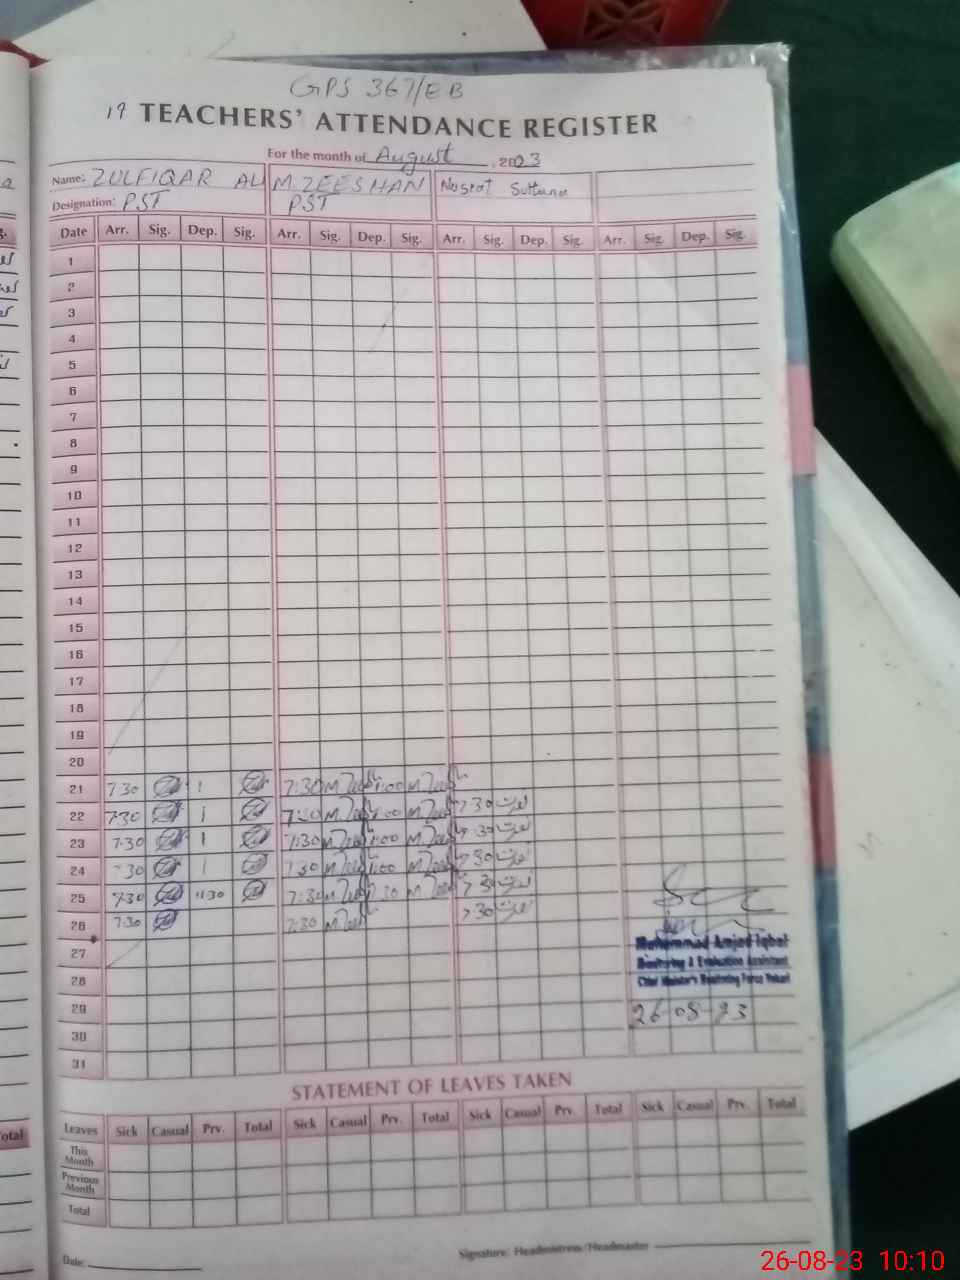 GPS 367/EB
19 TEACHERS' ATTENDANCE REGISTER
For the month of August, 2023
Name: ZULFIQAR ALI M. ZEESHAN Nusrat Sultana
Designation: PST PST
Date Arr. Sig. Dep. Sig. Arr. Sig. Dep. Sig. Arr. Sig. Dep. Sig. Arr. Sig. Dep. Sig.
1
2
3
4
5
6
7
8
9
10
11
12
13
14
15
16
17
18
19
20
21 7:30 1 7:30 1:00
22 7:30 1 7:30 1:00 7:30
23 7:30 1 7:30 1:00 7:30
24 7:30 1 7:30 1:00 7:30
25 7:30 11:30 7:30 7:30
26 7:30 7:30 7:30
27
28
29
30
31
Muhammad Amjad Iqbal
Monitoring & Evaluation Assistant
Chief Minister's Monitoring Force
26-08-23
STATEMENT OF LEAVES TAKEN
Leaves Sick Casual Prv. Total Sick Casual Prv. Total Sick Casual Prv. Total Sick Casual Prv. Total
This Month
Previous Month
Total
Date:
Signature: Headmistress/Headmaster
26-08-23 10:10